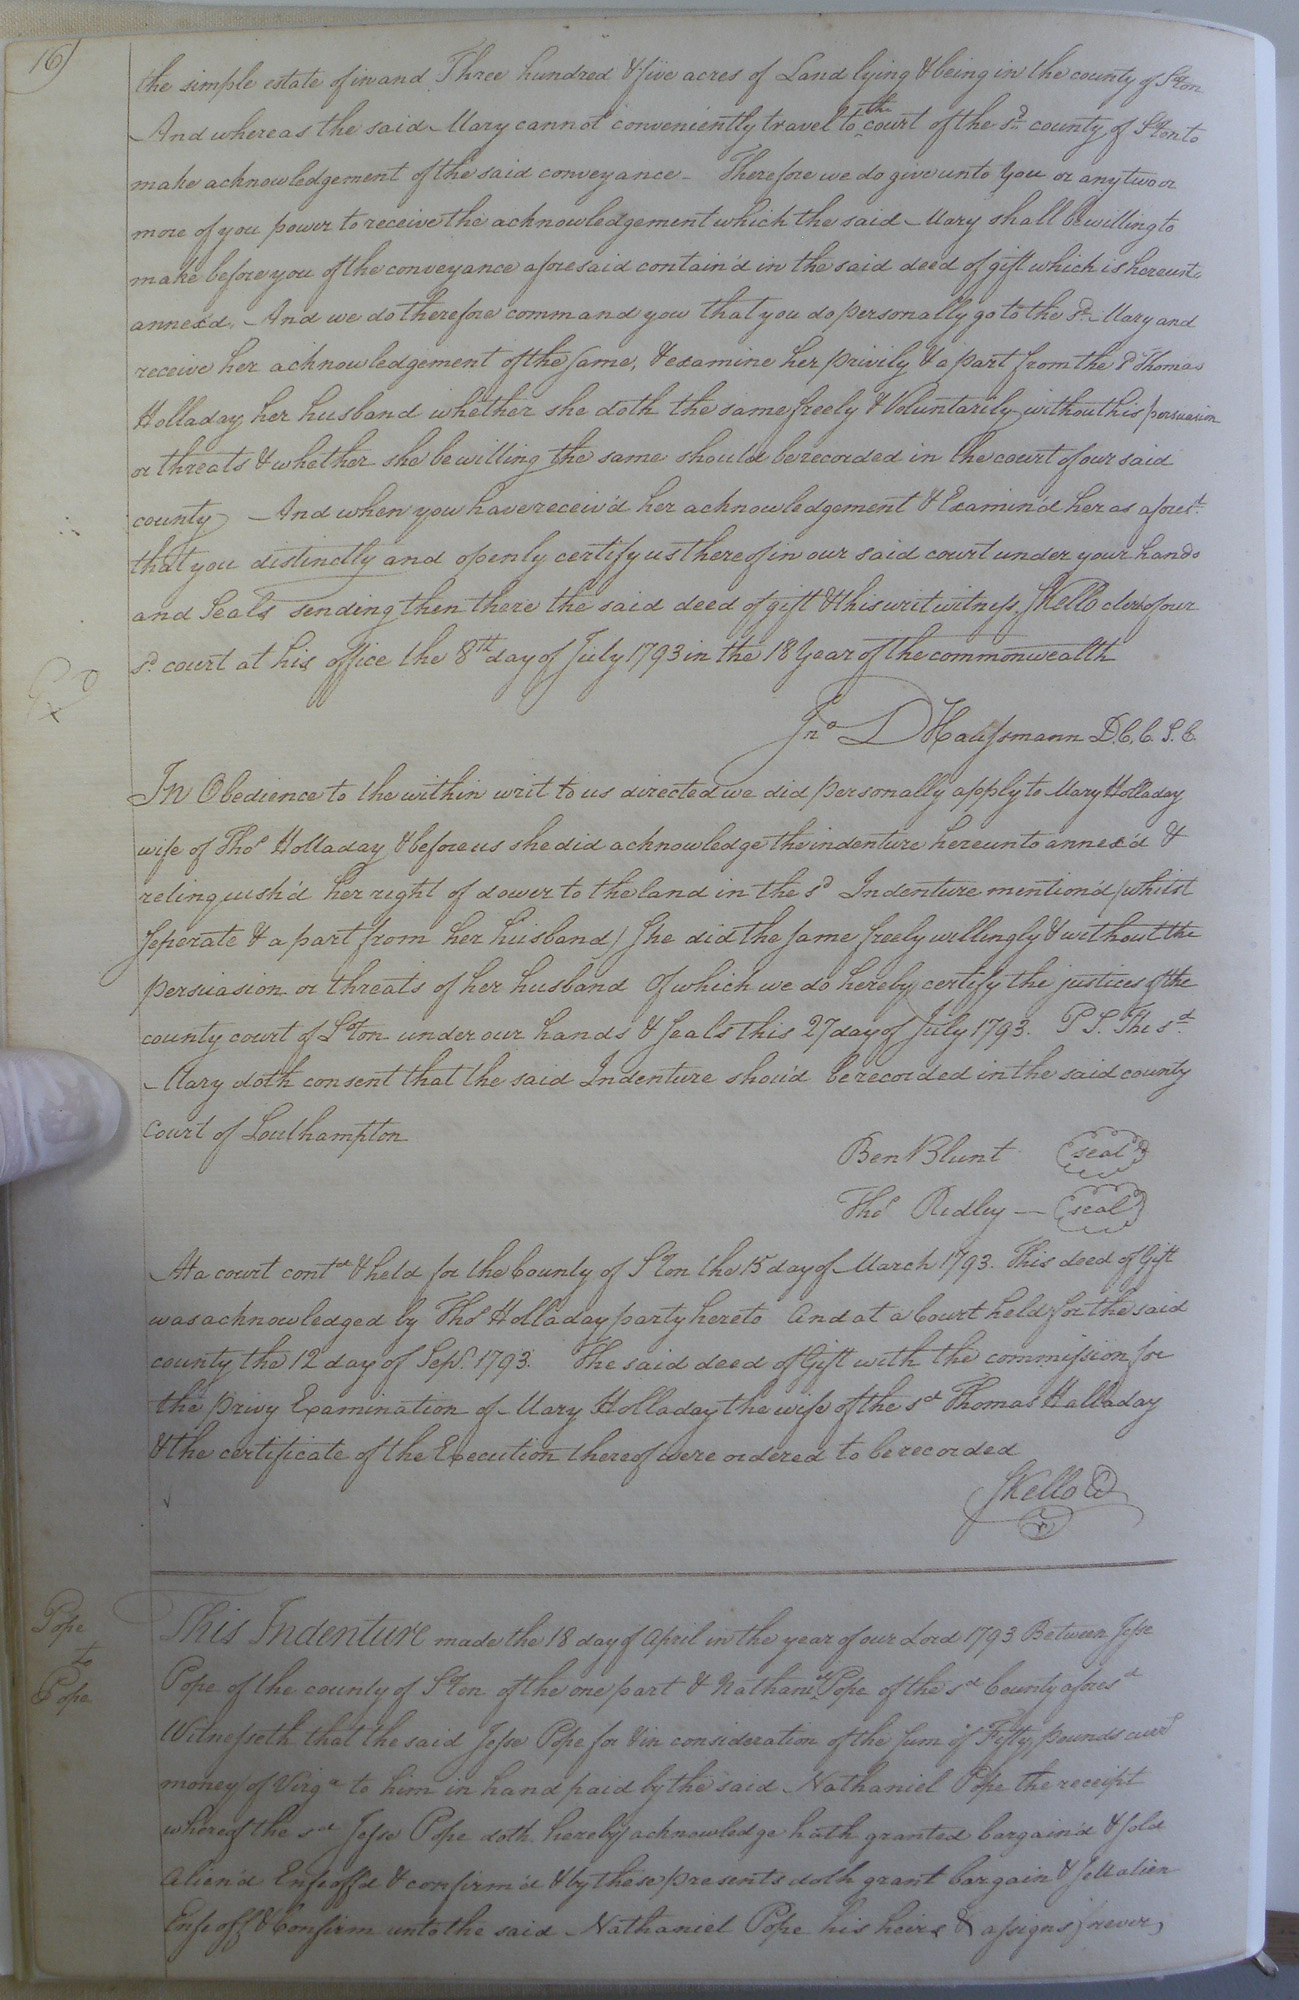 16)
the simple estate of in and Three hundred & five acres of Land lying & being in the county of S°ton
And whereas the said Mary cannot conveniently travel to the court of the sd county of S°ton to
make acknowledgement of the said conveyance - Therefore we do give unto you or any two or
more of you power to receive the acknowledgement which the said Mary shall be willing to
make before you of the conveyance aforesaid contain'd in the said deed of gift which is hereunto
annex'd. And we do therefore command you that you do personally go to the sd Mary and
receive her acknowledgement of the same, & examine her privily & a part from the sd Thomas
Holladay her husband whether she doth the same freely & Voluntarily without his persuasion
or threats & whether she be willing the same should be recorded in the court of our said
county And when you have receiv'd her acknowledgement & Examin'd her as aforesd
that you distinctly and openly certify us thereof in our said court under your hands
and Seals sending then there the said deed of gift & this writ witness SKello clerk of our
sd court at his office the 8th day of July 1793 in the 18 Year of the commonwealth
Jno D Haussmann D.C.C.S.C.
In Obedience to the within writ to us directed we did personally apply to Mary Holladay
wife of Thos Holladay & before us she did acknowledge the indenture hereunto annex'd &
relinquish'd her right of dower to the land in the sd Indenture mention'd (whilst
Seperate & a part from her husband) She did the same freely willingly & without the
persuasion or threats of her husband Of which we do hereby certify the justices of the
county court of S°ton under our hands & Seals this 27 day of July 1793. P S. The sd
Mary doth consent that the said Indenture shou'd be recorded in the said county
Court of Southampton
Ben Blunt (seal)
Thos Ridley — (seal)
At a court contd & held for the County of S°ton the 15 day of March 1793. This deed of Gift
was acknowledged by Thos Holladay party hereto And at a Court held for the said
county the 12 day of Sepr. 1793. The said deed of Gift with the commission for
the privy Examination of Mary Holladay the wife of the sd Thomas Halladay
& the certificate of the Execution thereof were ordered to be recorded
SKello
Pope
to
Pope
This Indenture made the 18 day of April in the year of our Lord 1793 Between Jesse
Pope of the county of S°ton of the one part & Nathaniel Pope of the sd County aforesd
Witnesseth that the said Jesse Pope for & in consideration of the sum of Fifty pounds curt
money of Virga to him in hand paid by the said Nathaniel Pope the receipt
whereof the sd Jesse Pope doth hereby acknowledge hath granted bargain'd & sold
Alien'd Enfeoff'd & confirm'd & by these presents doth grant bargain & sell alien
Enfeoff & Confirm unto the said Nathaniel Pope his heirs & assigns forever,